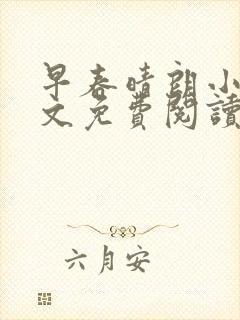 早春晴朗小
文免費閱讀
六月安